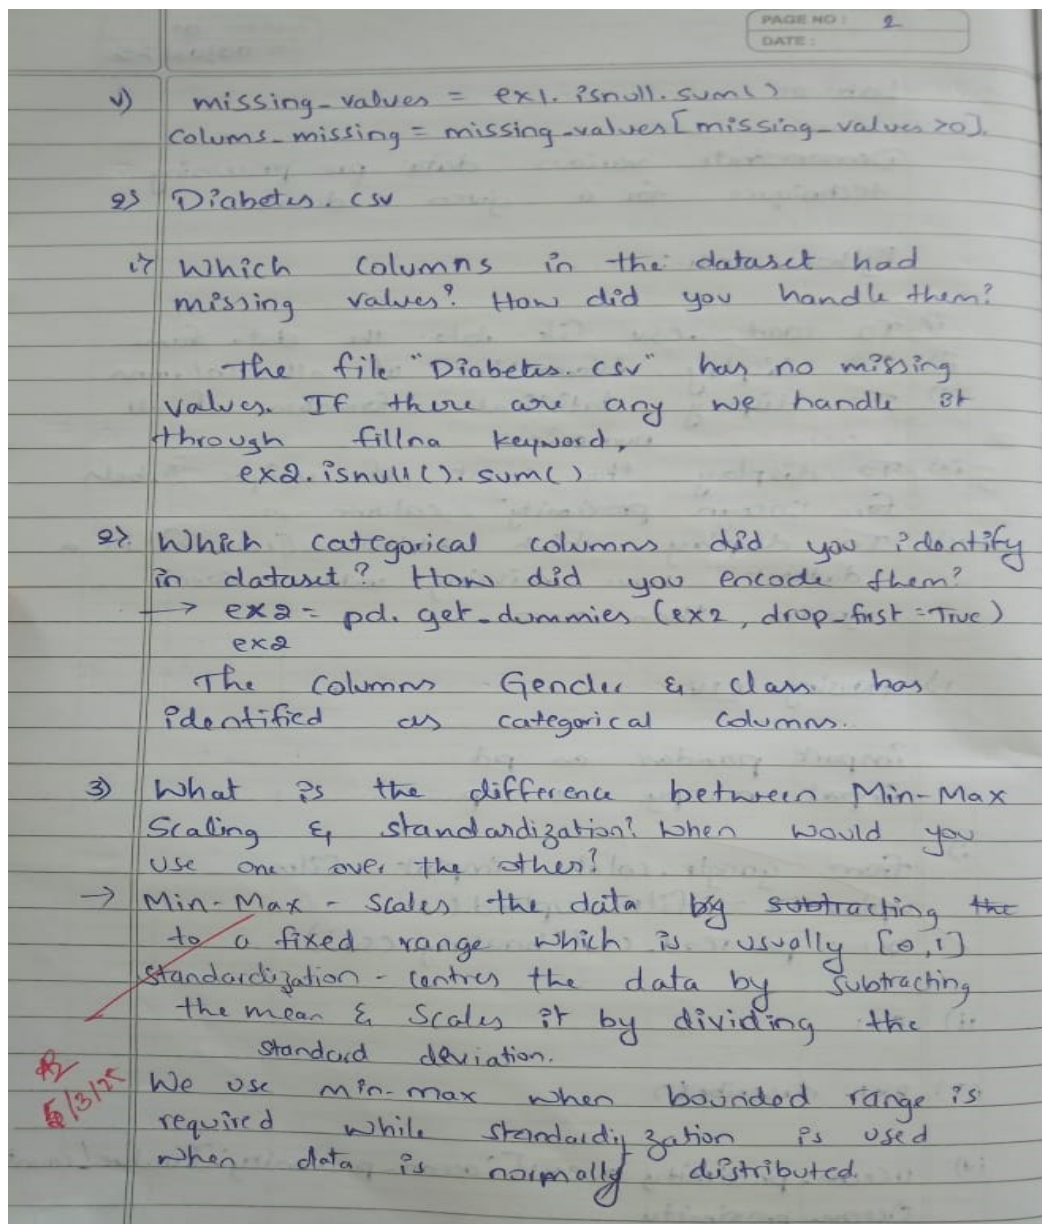 PAGE NO: 2
DATE:
v) missing_values = ex1.isnull.sum()
colums_missing = missing_values[missing_values>0].
2) Diabetes.csv
i) Which columns in the dataset had
missing values? How did you handle them?
The file "Diabetes.csv" has no missing
values. If there are any we handle it
through fillna keyword,
ex2.isnull().sum()
2) Which categorical columns did you identify
in dataset? How did you encode them?
→ ex2 = pd.get_dummies (ex2, drop_first=True)
ex2
The columns Gender & class has
identified as categorical columns.
3) What is the difference between Min-Max
Scaling & standardization? When would you
use one over the other?
→ Min-Max - scales the data by subtracting the
to a fixed range which is usually [0,1]
standardization - centres the data by subtracting
the mean & scales it by dividing the
standard deviation.
5/3/25
We use min-max when bounded range is
required while standardization is used
when data is normally distributed.